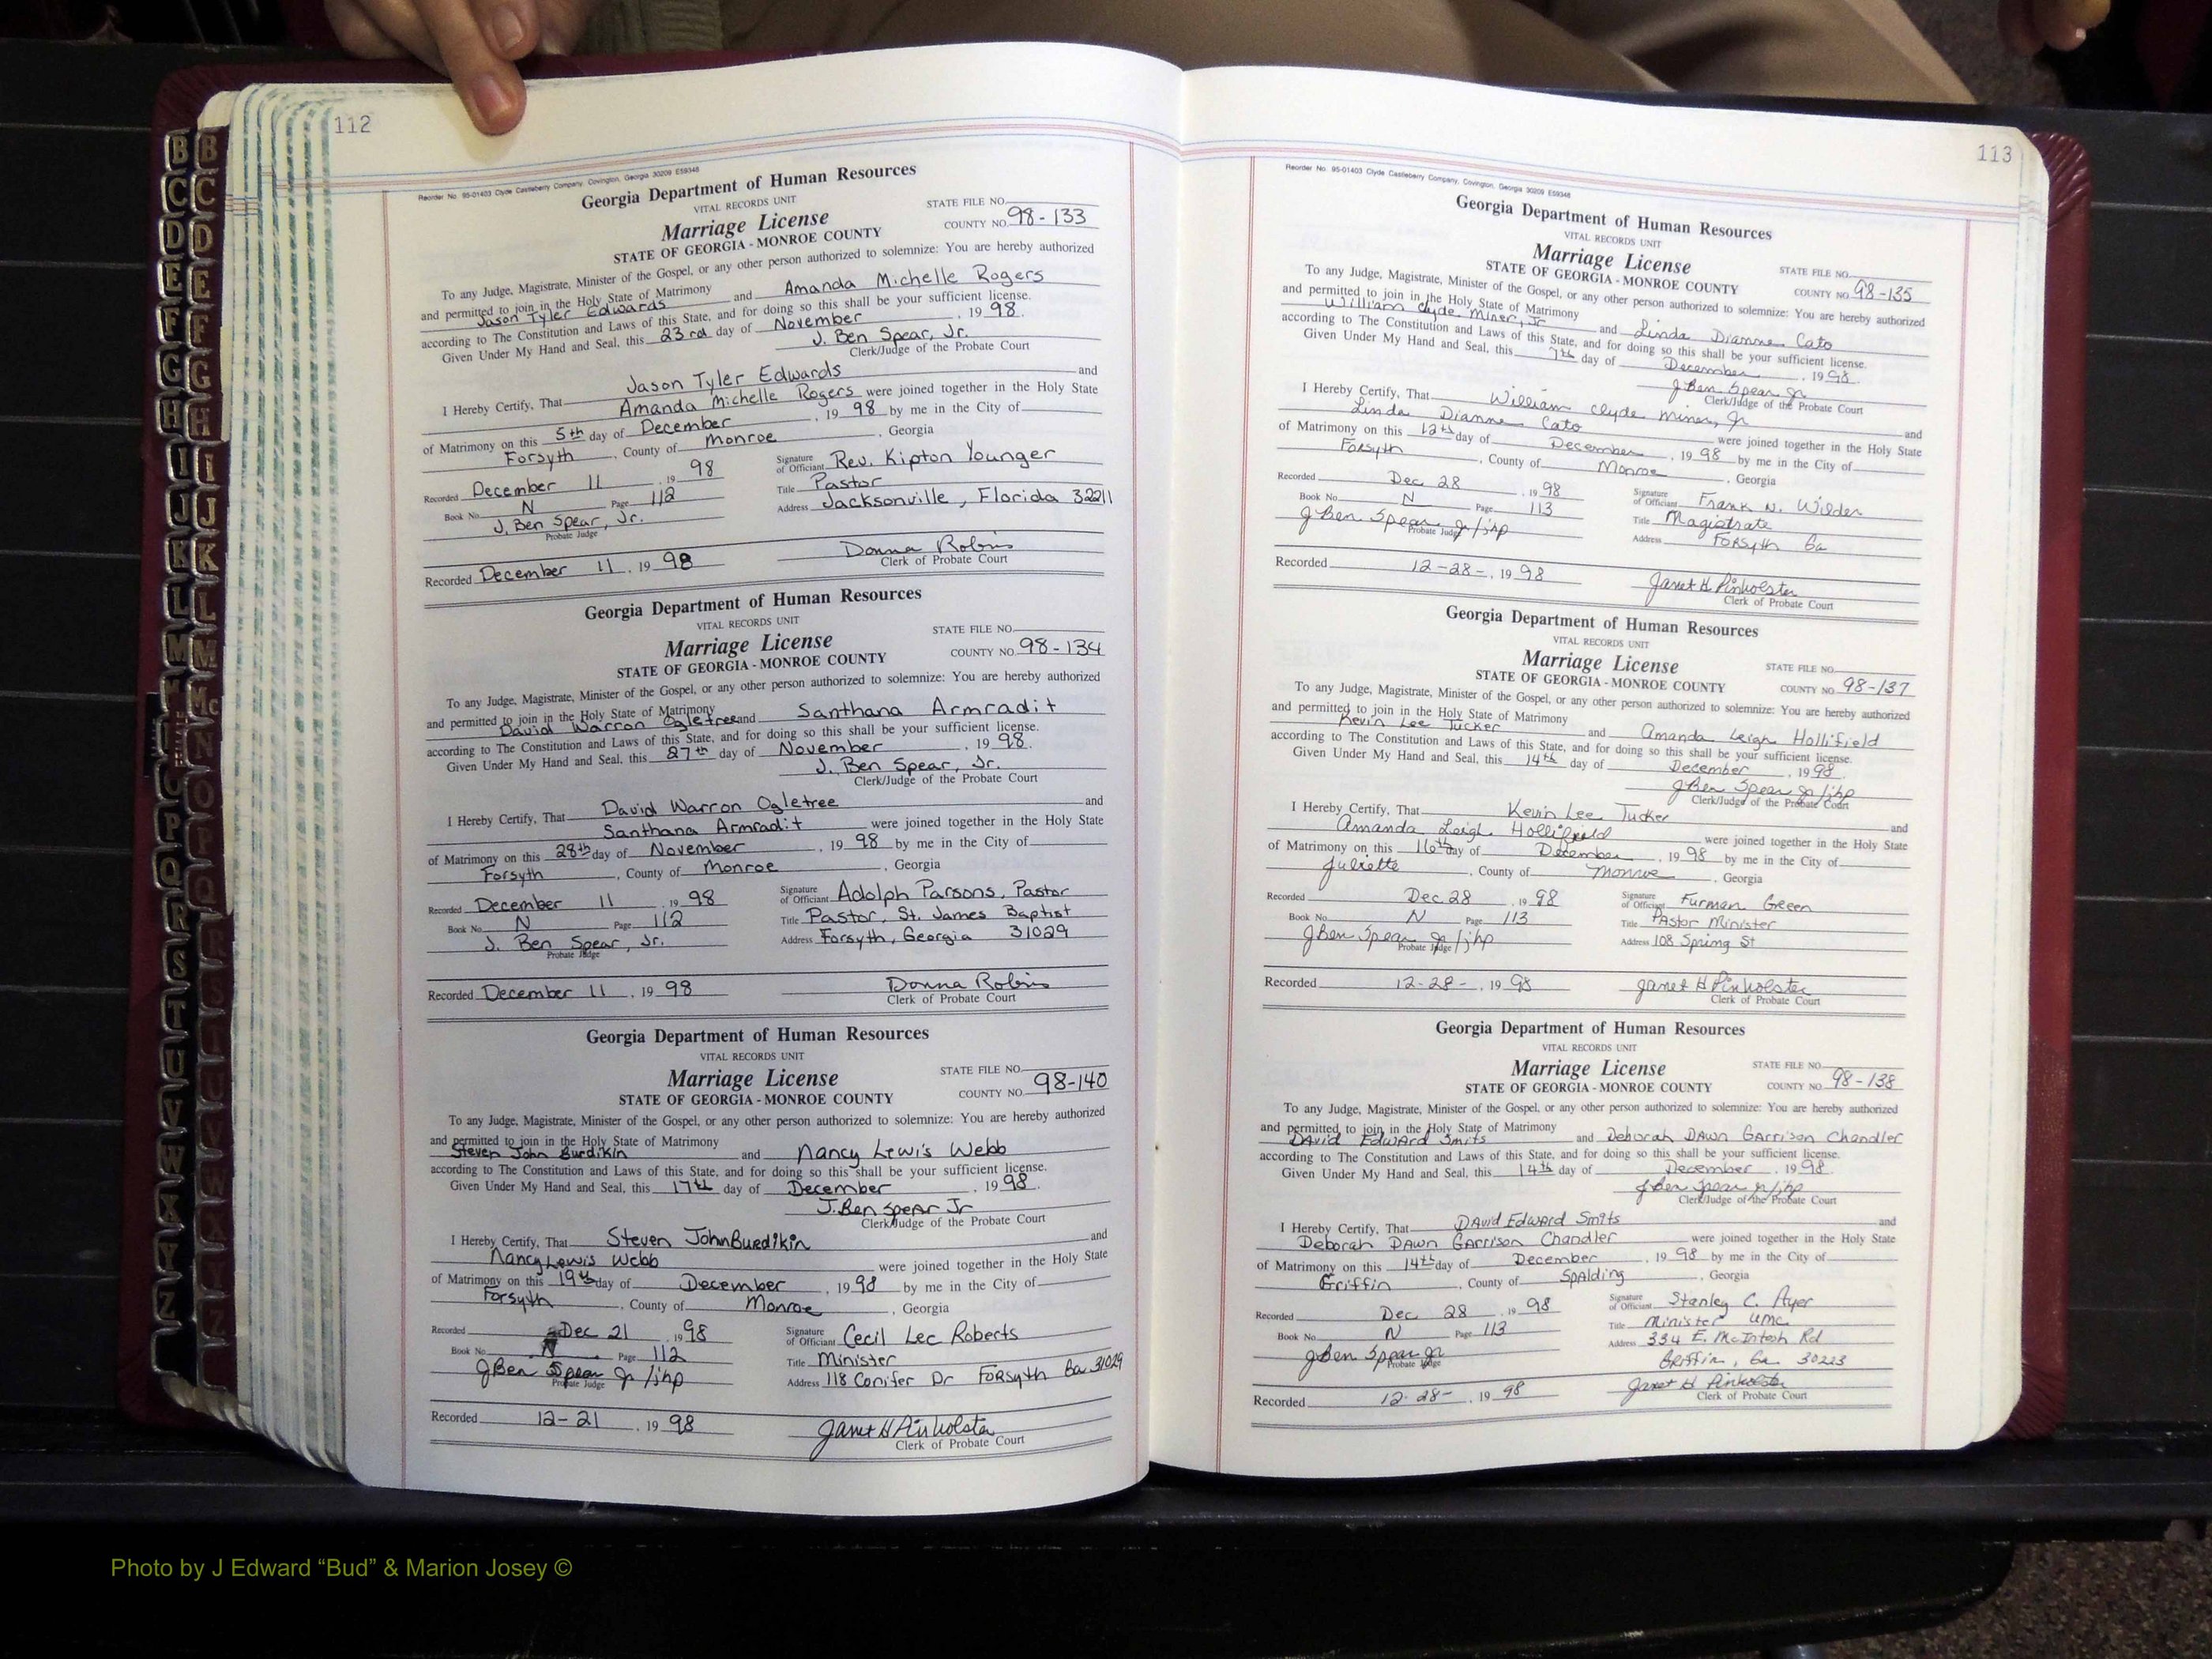 112
Reorder No. 95-01403 Clyde Castleberry Company, Covington, Georgia 30209 E59348
Georgia Department of Human Resources
VITAL RECORDS UNIT
Marriage License
STATE OF GEORGIA - MONROE COUNTY
STATE FILE NO.
COUNTY NO. 98-133
To any Judge, Magistrate, Minister of the Gospel, or any other person authorized to solemnize: You are hereby authorized
and permitted to join in the Holy State of Matrimony
Jason Tyler Edwards and Amanda Michelle Rogers
according to The Constitution and Laws of this State, and for doing so this shall be your sufficient license.
Given Under My Hand and Seal, this 23rd day of November, 1998.
J. Ben Spear, Jr.
Clerk/Judge of the Probate Court
I Hereby Certify, That Jason Tyler Edwards and
Amanda Michelle Rogers were joined together in the Holy State
of Matrimony on this 5th day of December, 1998 by me in the City of
Forsyth, County of Monroe, Georgia
Recorded December 11, 1998
Book No. N Page 112
J. Ben Spear, Jr.
Probate Judge
Signature of Officiant Rev. Kipton Younger
Title Pastor
Address Jacksonville, Florida 32211
Recorded December 11, 1998
Donna Robins
Clerk of Probate Court
Georgia Department of Human Resources
VITAL RECORDS UNIT
Marriage License
STATE OF GEORGIA - MONROE COUNTY
STATE FILE NO.
COUNTY NO. 98-134
To any Judge, Magistrate, Minister of the Gospel, or any other person authorized to solemnize: You are hereby authorized
and permitted to join in the Holy State of Matrimony
David Warron Ogletree and Santhana Armradit
according to The Constitution and Laws of this State, and for doing so this shall be your sufficient license.
Given Under My Hand and Seal, this 27th day of November, 1998.
J. Ben Spear, Jr.
Clerk/Judge of the Probate Court
I Hereby Certify, That David Warron Ogletree and
Santhana Armradit were joined together in the Holy State
of Matrimony on this 28th day of November, 1998 by me in the City of
Forsyth, County of Monroe, Georgia
Recorded December 11, 1998
Book No. N Page 112
J. Ben Spear, Jr.
Probate Judge
Signature of Officiant Adolph Parsons, Pastor
Title Pastor, St. James Baptist
Address Forsyth, Georgia 31029
Recorded December 11, 1998
Donna Robins
Clerk of Probate Court
Georgia Department of Human Resources
VITAL RECORDS UNIT
Marriage License
STATE OF GEORGIA - MONROE COUNTY
STATE FILE NO.
COUNTY NO. 98-140
To any Judge, Magistrate, Minister of the Gospel, or any other person authorized to solemnize: You are hereby authorized
and permitted to join in the Holy State of Matrimony
Steven John Burdikin and Nancy Lewis Webb
according to The Constitution and Laws of this State, and for doing so this shall be your sufficient license.
Given Under My Hand and Seal, this 17th day of December, 1998.
J. Ben Spear Jr
Clerk/Judge of the Probate Court
I Hereby Certify, That Steven John Burdikin and
Nancy Lewis Webb were joined together in the Holy State
of Matrimony on this 19th day of December, 1998 by me in the City of
Forsyth, County of Monroe, Georgia
Recorded Dec 21, 1998
Book No. N Page 112
J Ben Spear Jr /jhp
Probate Judge
Signature of Officiant Cecil Lee Roberts
Title Minister
Address 118 Conifer Dr Forsyth Ga 31029
Recorded 12-21, 1998
Janet H Pinholster
Clerk of Probate Court
113
Reorder No. 95-01403 Clyde Castleberry Company, Covington, Georgia 30209 E59348
Georgia Department of Human Resources
VITAL RECORDS UNIT
Marriage License
STATE OF GEORGIA - MONROE COUNTY
STATE FILE NO.
COUNTY NO. 98-135
To any Judge, Magistrate, Minister of the Gospel, or any other person authorized to solemnize: You are hereby authorized
and permitted to join in the Holy State of Matrimony
William Clyde Miner, Jr and Linda Dianne Cato
according to The Constitution and Laws of this State, and for doing so this shall be your sufficient license.
Given Under My Hand and Seal, this 7th day of December, 1998.
J Ben Spear Jr
Clerk/Judge of the Probate Court
I Hereby Certify, That William Clyde Miner, Jr and
Linda Dianne Cato were joined together in the Holy State
of Matrimony on this 12th day of December, 1998 by me in the City of
Forsyth, County of Monroe, Georgia
Recorded Dec 28, 1998
Book No. N Page 113
J Ben Spear Jr/jhp
Probate Judge
Signature of Officiant Frank N. Wilder
Title Magistrate
Address Forsyth Ga
Recorded 12-28-, 1998
Janet H Pinholster
Clerk of Probate Court
Georgia Department of Human Resources
VITAL RECORDS UNIT
Marriage License
STATE OF GEORGIA - MONROE COUNTY
STATE FILE NO.
COUNTY NO. 98-137
To any Judge, Magistrate, Minister of the Gospel, or any other person authorized to solemnize: You are hereby authorized
and permitted to join in the Holy State of Matrimony
Kevin Lee Tucker and Amanda Leigh Hollifield
according to The Constitution and Laws of this State, and for doing so this shall be your sufficient license.
Given Under My Hand and Seal, this 14th day of December, 1998.
J Ben Spear Jr/jhp
Clerk/Judge of the Probate Court
I Hereby Certify, That Kevin Lee Tucker and
Amanda Leigh Hollifield were joined together in the Holy State
of Matrimony on this 16th day of December, 1998 by me in the City of
Juliette, County of Monroe, Georgia
Recorded Dec 28, 1998
Book No. N Page 113
J Ben Spear Jr/jhp
Probate Judge
Signature of Officiant Furman Green
Title Pastor Minister
Address 108 Spring St
Recorded 12-28-, 1998
Janet H Pinholster
Clerk of Probate Court
Georgia Department of Human Resources
VITAL RECORDS UNIT
Marriage License
STATE OF GEORGIA - MONROE COUNTY
STATE FILE NO.
COUNTY NO. 98-138
To any Judge, Magistrate, Minister of the Gospel, or any other person authorized to solemnize: You are hereby authorized
and permitted to join in the Holy State of Matrimony
David Edward Smits and Deborah Dawn Garrison Chandler
according to The Constitution and Laws of this State, and for doing so this shall be your sufficient license.
Given Under My Hand and Seal, this 14th day of December, 1998.
J Ben Spear Jr/jhp
Clerk/Judge of the Probate Court
I Hereby Certify, That David Edward Smits and
Deborah Dawn Garrison Chandler were joined together in the Holy State
of Matrimony on this 14th day of December, 1998 by me in the City of
Griffin, County of Spalding, Georgia
Recorded Dec 28, 1998
Book No. N Page 113
J Ben Spear Jr
Probate Judge
Signature of Officiant Stanley C. Ayer
Title Minister UMC
Address 334 E. McIntosh Rd
Griffin, Ga 30223
Recorded 12-28-, 1998
Janet H Pinholster
Clerk of Probate Court
Photo by J Edward “Bud” & Marion Josey ©